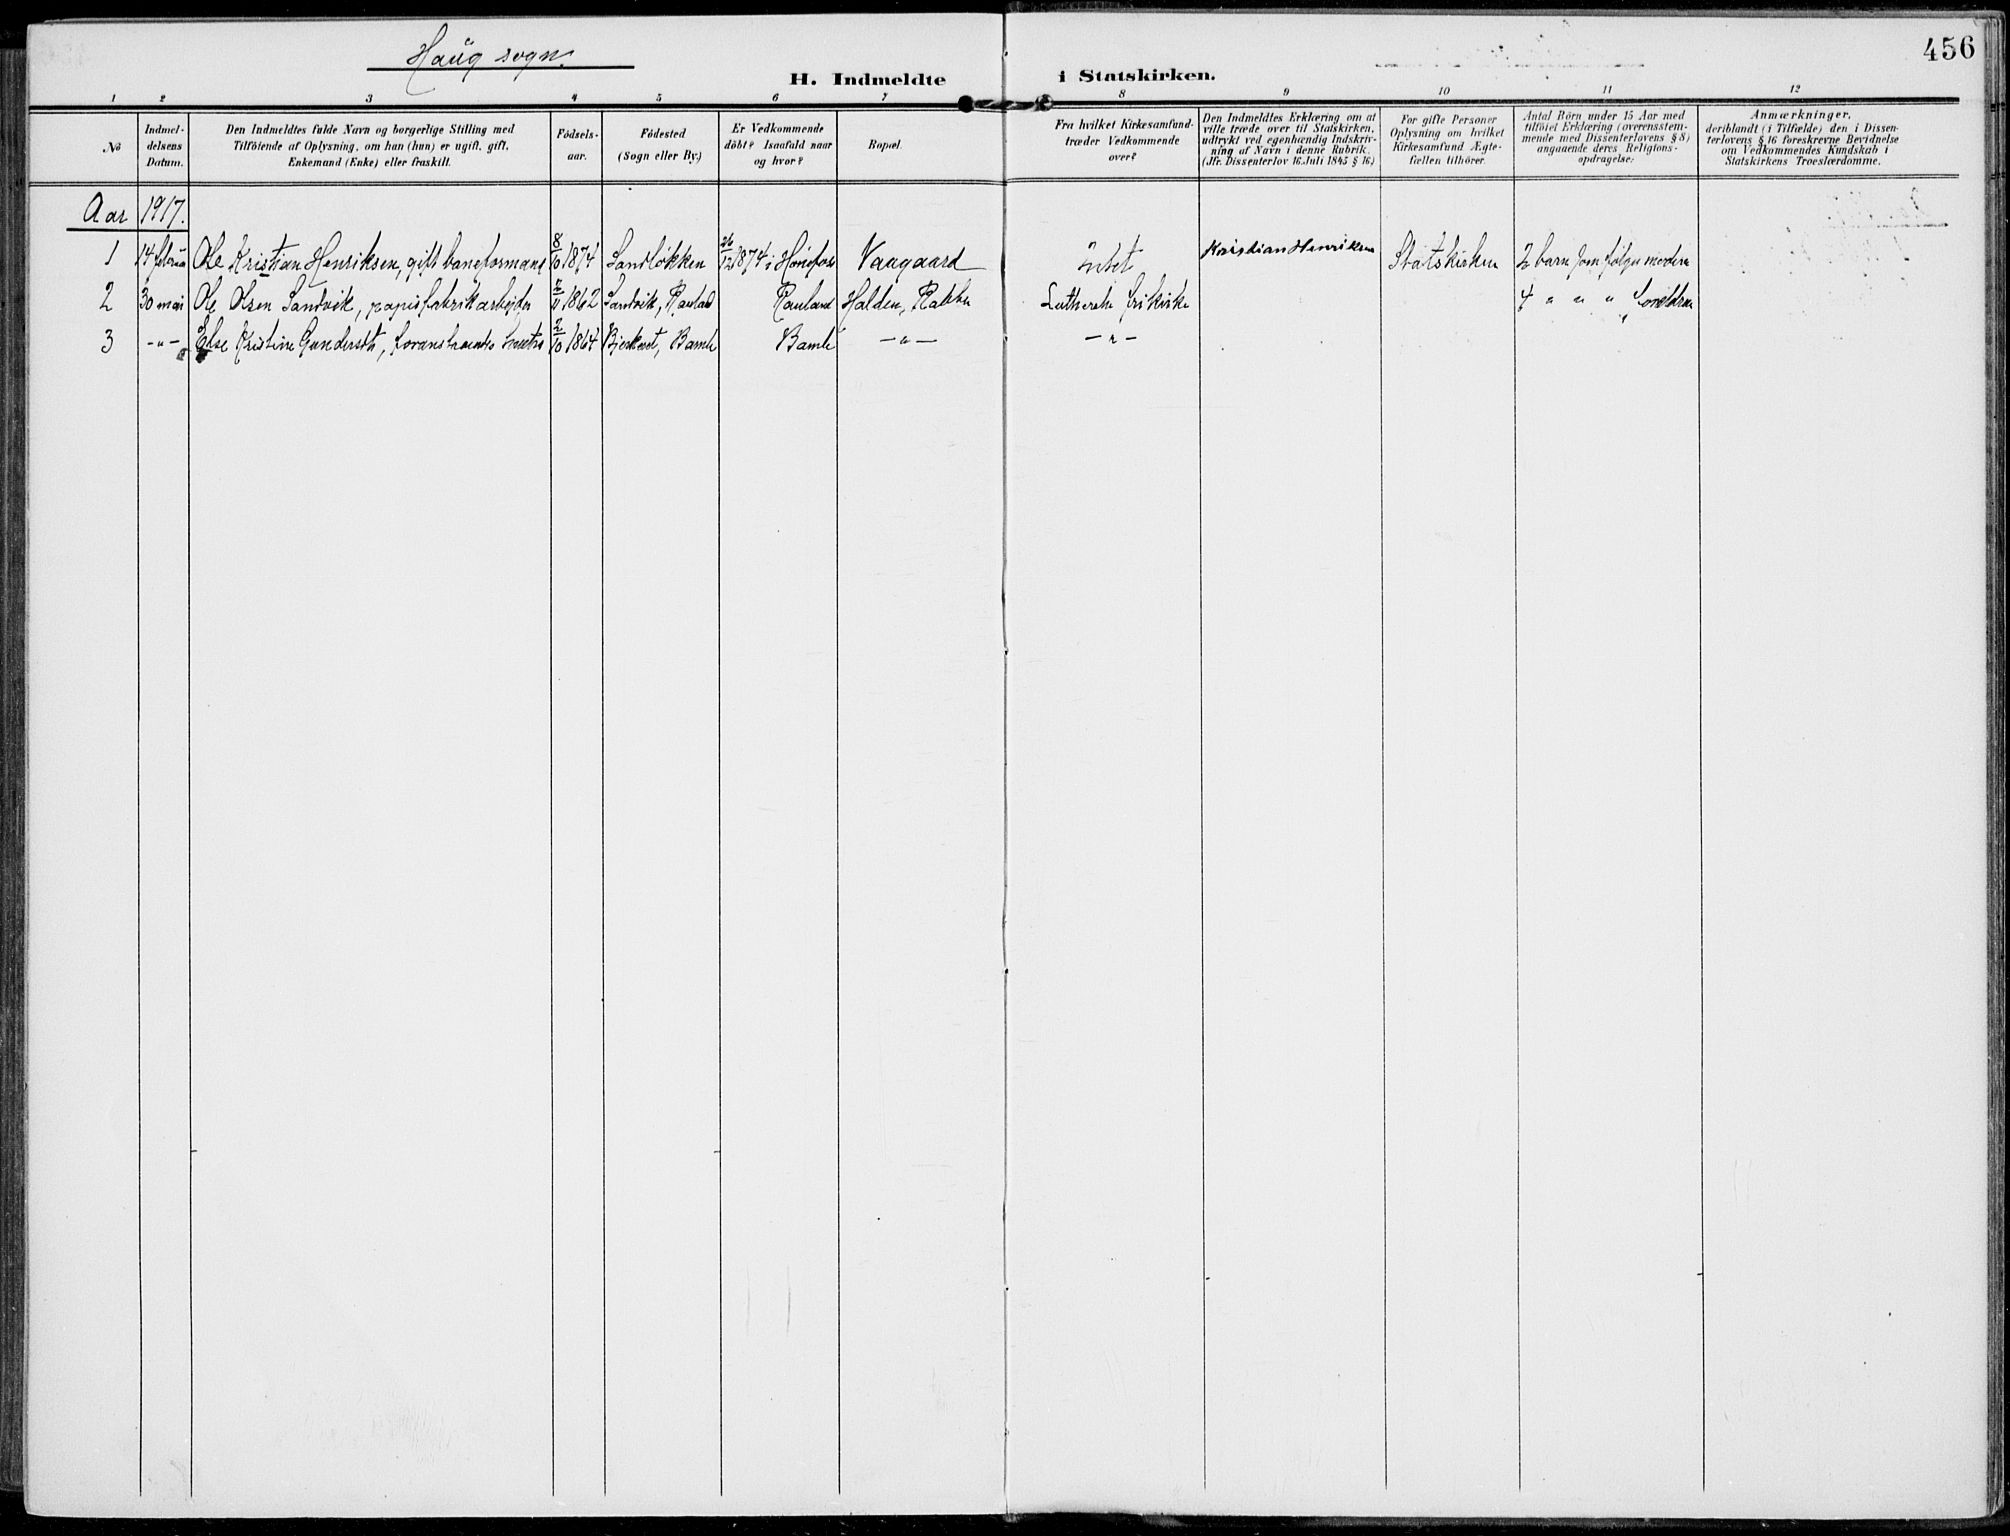 Haug sogn.
456
H. Indmeldte i Statskirken.
1 2 3 4 5 6 7 8 9 10 11 12
No
Indmel-
delsens
Datum.
Den Indmeldtes fulde Navn og borgerlige Stilling med
Tilföiende af Oplysning, om han (hun) er ugift, gift,
Enkemand (Enke) eller fraskilt.
Födsels-
aar.
Födested
(Sogn eller By.)
Er Vedkommende
döbt? Isaafald naar
og hvor?
Bopæl.
Fra hvilket Kirkesamfund
træder Vedkommende
over?
Den Indmeldtes Erklæring om at
ville træde over til Statskirken,
udtrykt ved egenhændig Indskriv-
ning af Navn i denne Rubrik.
(Jfr. Dissenterlov 16. Juli 1845 § 16)
For gifte Personer
Oplysning om hvilket
Kirkesamfund Ægte-
fællen tilhörer.
Antal Börn under 15 Aar med
tilföiet Erklæring (overensstem-
mende med Dissenterlovens § 8)
angaaende deres Religions-
opdragelse.
Anmærkninger,
deriblandt (i Tilfælde) den i Dissen-
terlovens § 16 foreskrevne Bevidnelse
om Vedkommendes Kundskab i
Statskirkens Troeslærdomme.
Aar 1917.
1 14 februar Ole Kristian Henriksen, gift baneformand 8/10 1874 Sandløkken 26/12 1874 i Hønefoss Vaagaard Intet Kristian Henriksen Statskirken 2 barn som følger moderen
2 30 mai Ole Olsen Sandvik, papirfabrikarbejder 1862 Sandvik, Rauland Rauland Halden, Rabba Lutherske frikirke 4 " " " foreldrene
3 -"- Else Kristine Gundersdt, foranstaaendes hustru 2/10 1864 Bjerkeset, Bamle Bamle -"- -"-